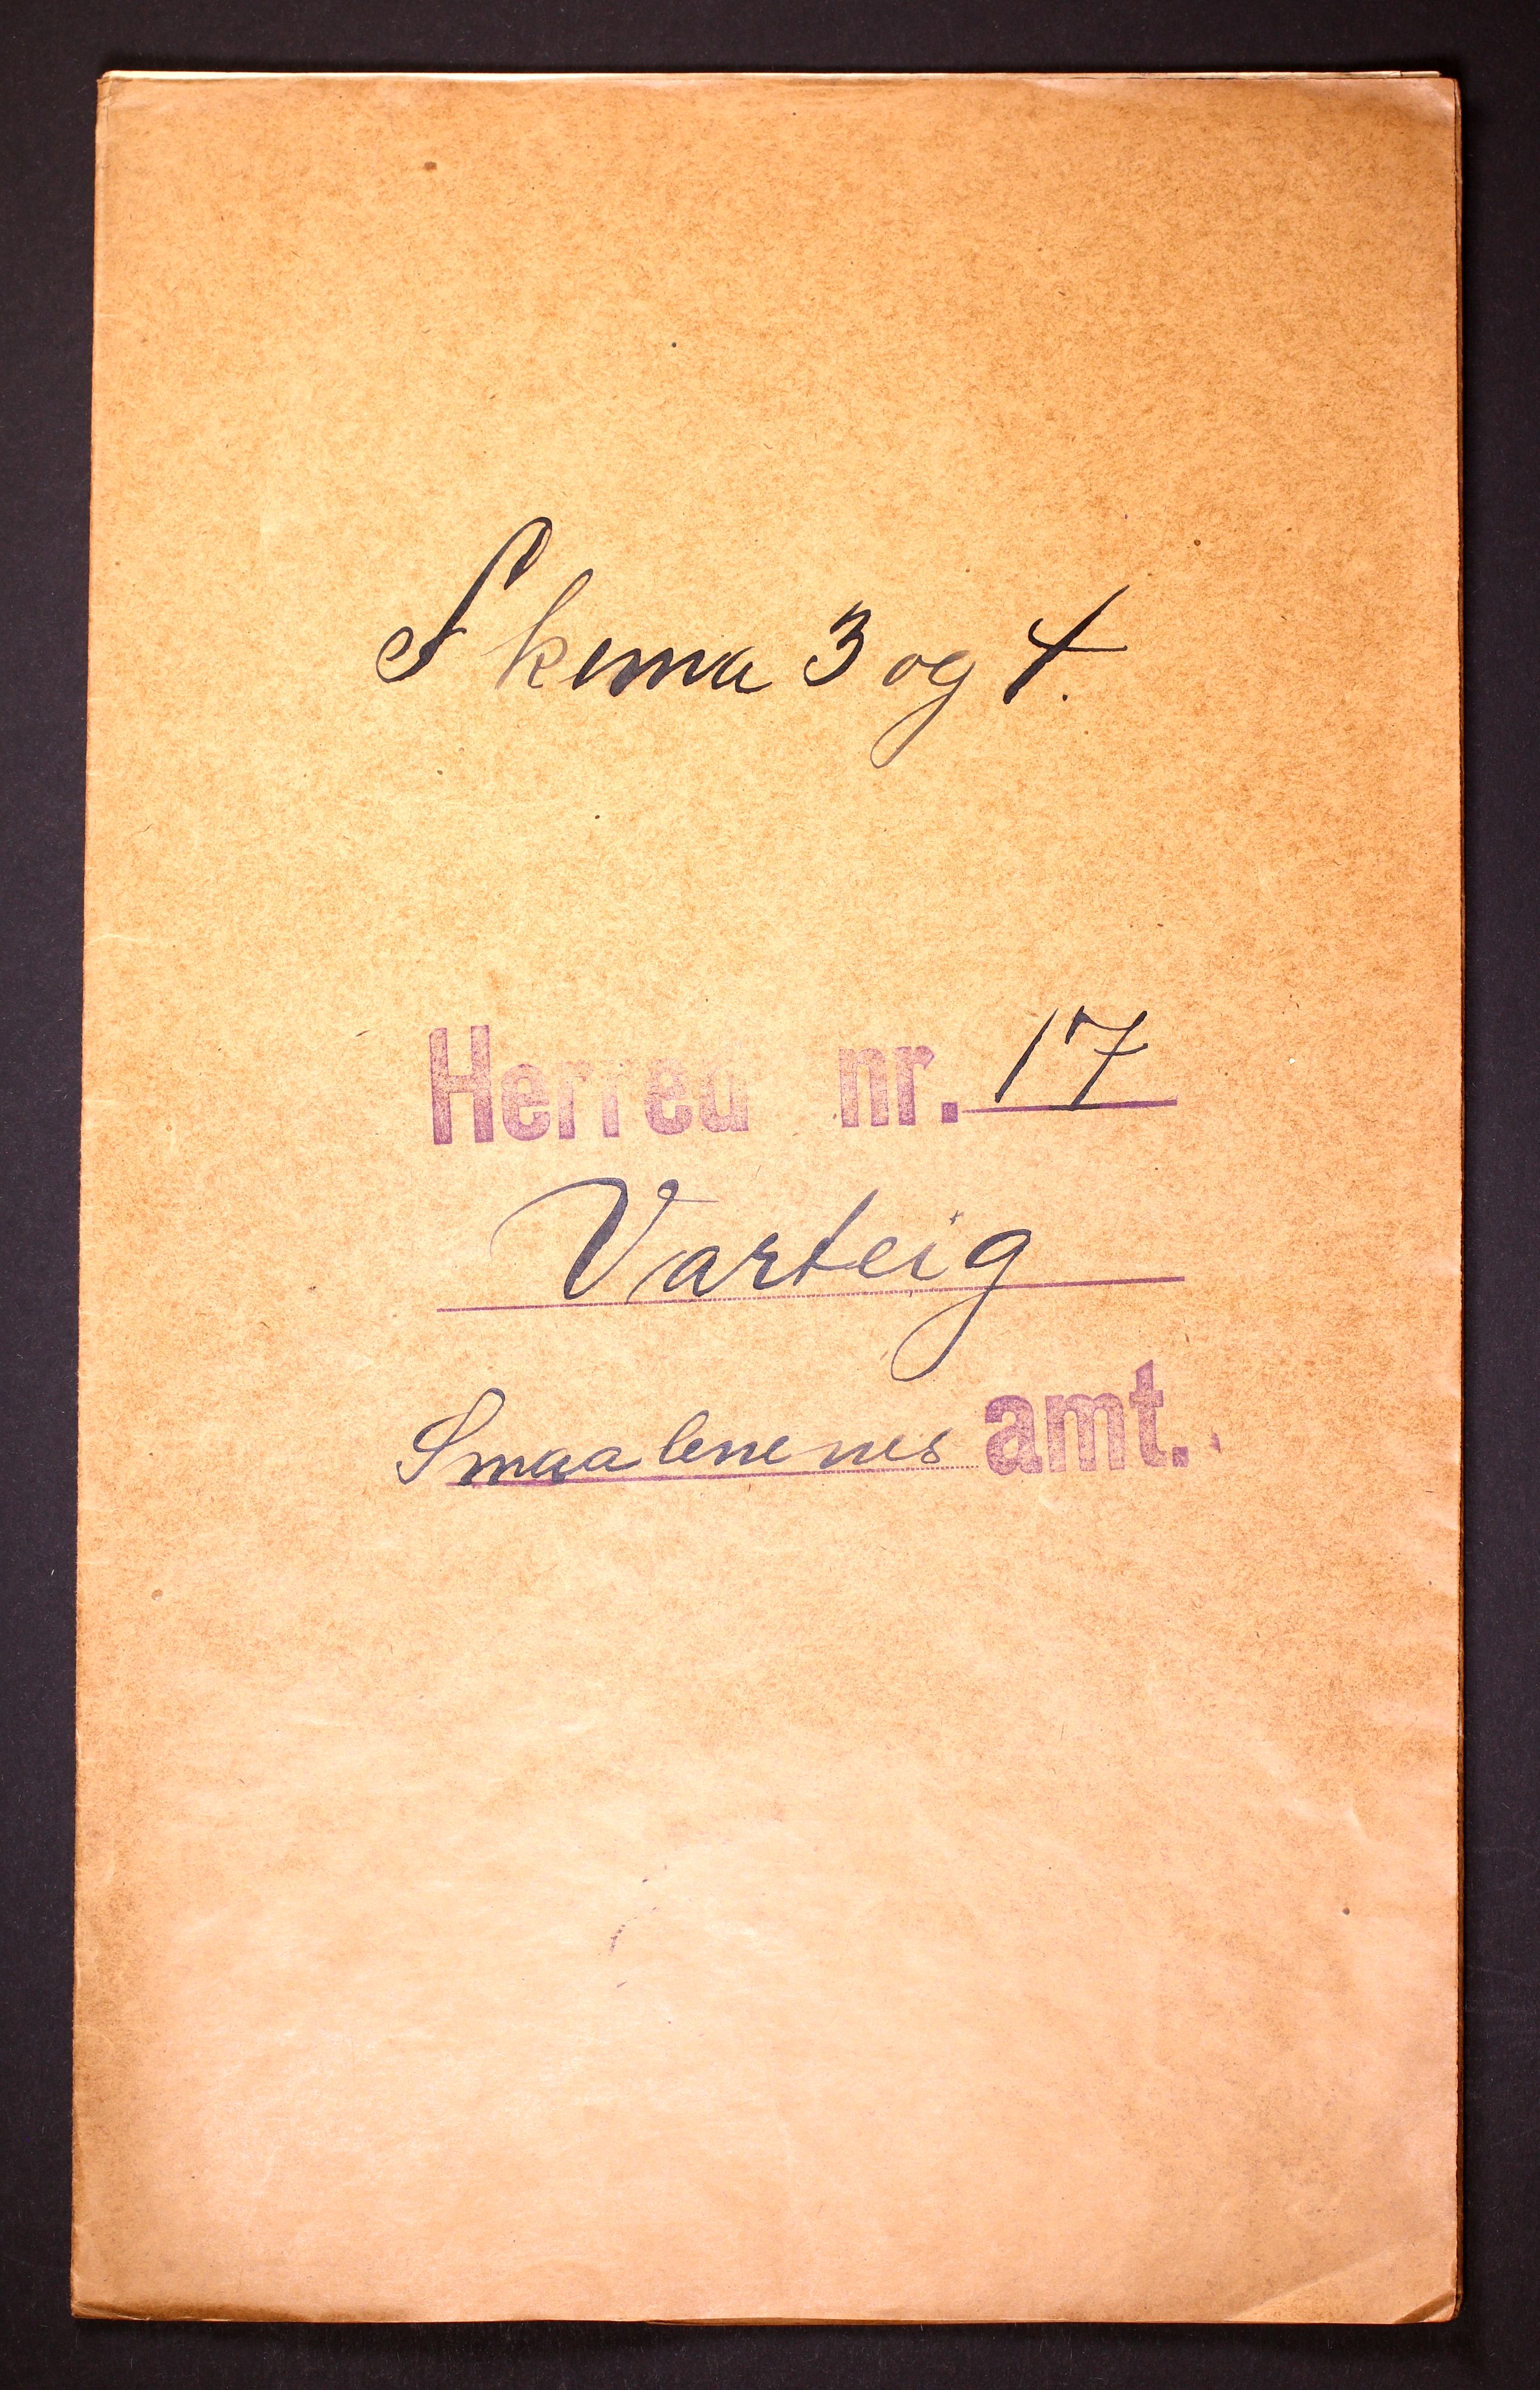 Skema 3 og 4.
Herred nr. 17
Varteig
Smaalenenes amt.